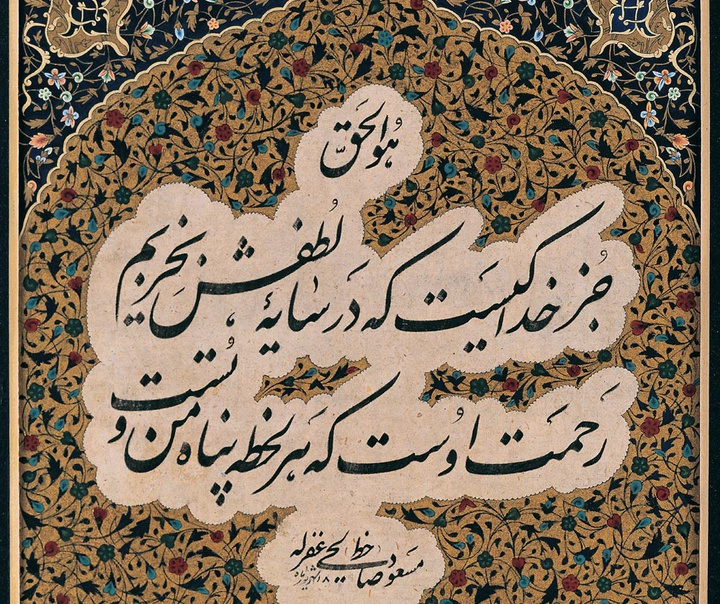 هُو الحَقّ
جُز خدا کیسَت که دَر سایهٔ لُطفش بخَزیم
رَحمَت اوُست که هَر لحظه پناه من و تُست
خط مسعود صالحی غفرله